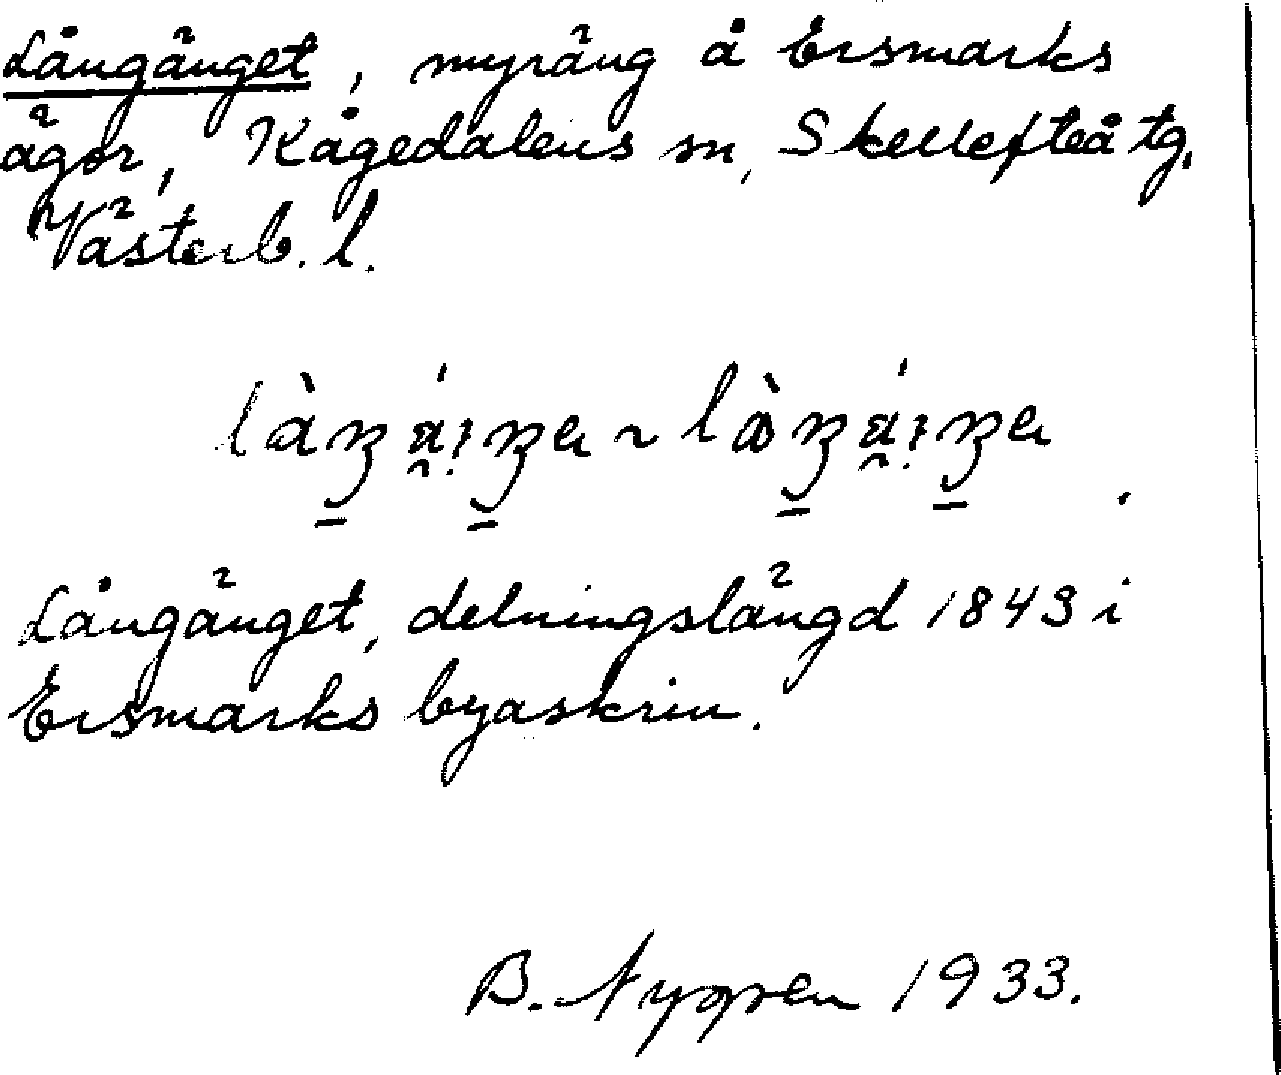 Långänget, myräng å Ersmarks
ägor, Kågedalens sn, Skellefteå tg,
Västerb. l.
Långänget, delningslängd 1843 i
Ersmarks byaskrin.
B. Nygren 1933.